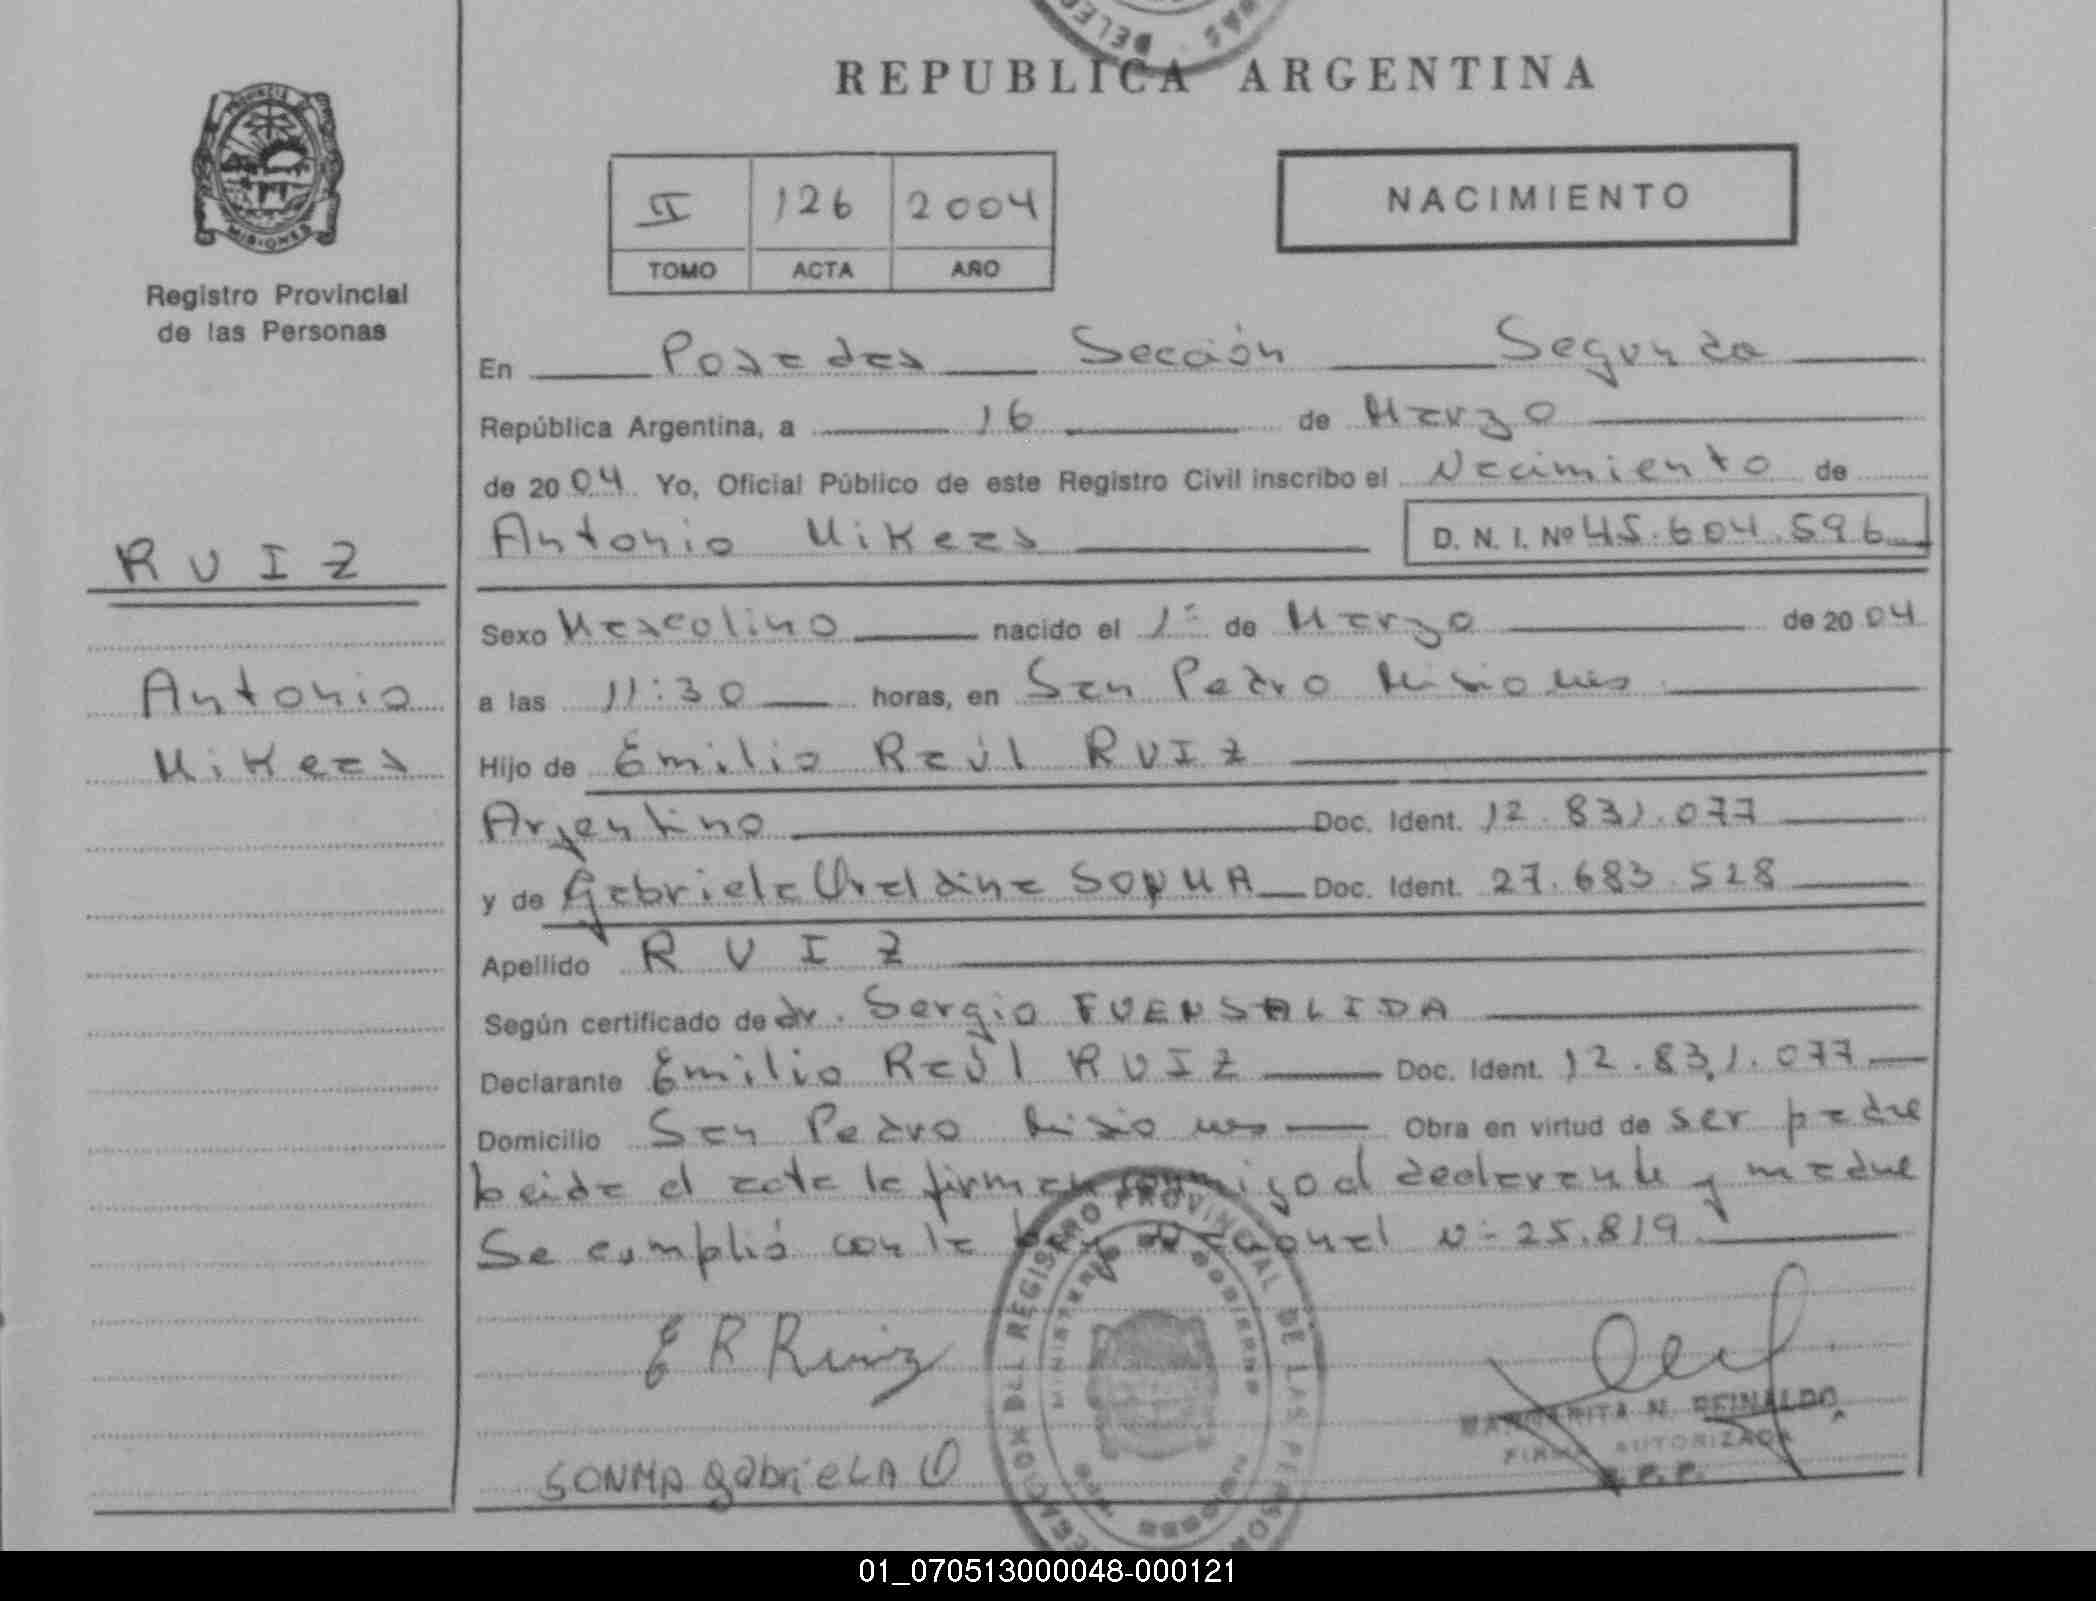 REPUBLICA ARGENTINA
PROVINCIA DE
MISIONES
Registro Provincial
de las Personas
II 126 2004
TOMO ACTA AÑO
NACIMIENTO
En Posadas Sección Segunda
República Argentina, a 16 de Marzo
de 2004 Yo, Oficial Público de este Registro Civil inscribo el Nacimiento de
Antonio Mikeas D. N. I. Nº 45.604.596
RUIZ
Antonio
Mikeas
Sexo Masculino nacido el 1º de Marzo de 2004
a las 11:30 horas, en San Pedro Misiones
Hijo de Emilio Raúl RUIZ
Argentino Doc. Ident. 12.831.077
y de Gabriela SONMA Doc. Ident. 27.683.528
Apellido RUIZ
Según certificado de dr. Sergio FUENSALIDA
Declarante Emilio Raúl RUIZ Doc. Ident. 12.831.077
Domicilio San Pedro Misiones Obra en virtud de ser padre
Leida el acta la firman conmigo el declarante y madre
Se cumplió con la Ley Nacional nº 25.819
E R Ruiz
SONMA gabrieLA
DEL REGISTRO PROVINCIAL DE LAS PERSONAS
MINISTERIO DE GOBIERNO
MISIONES
MARGARITA N. REINALDO
FIRMA AUTORIZADA
R. P. P.
01_070513000048-000121